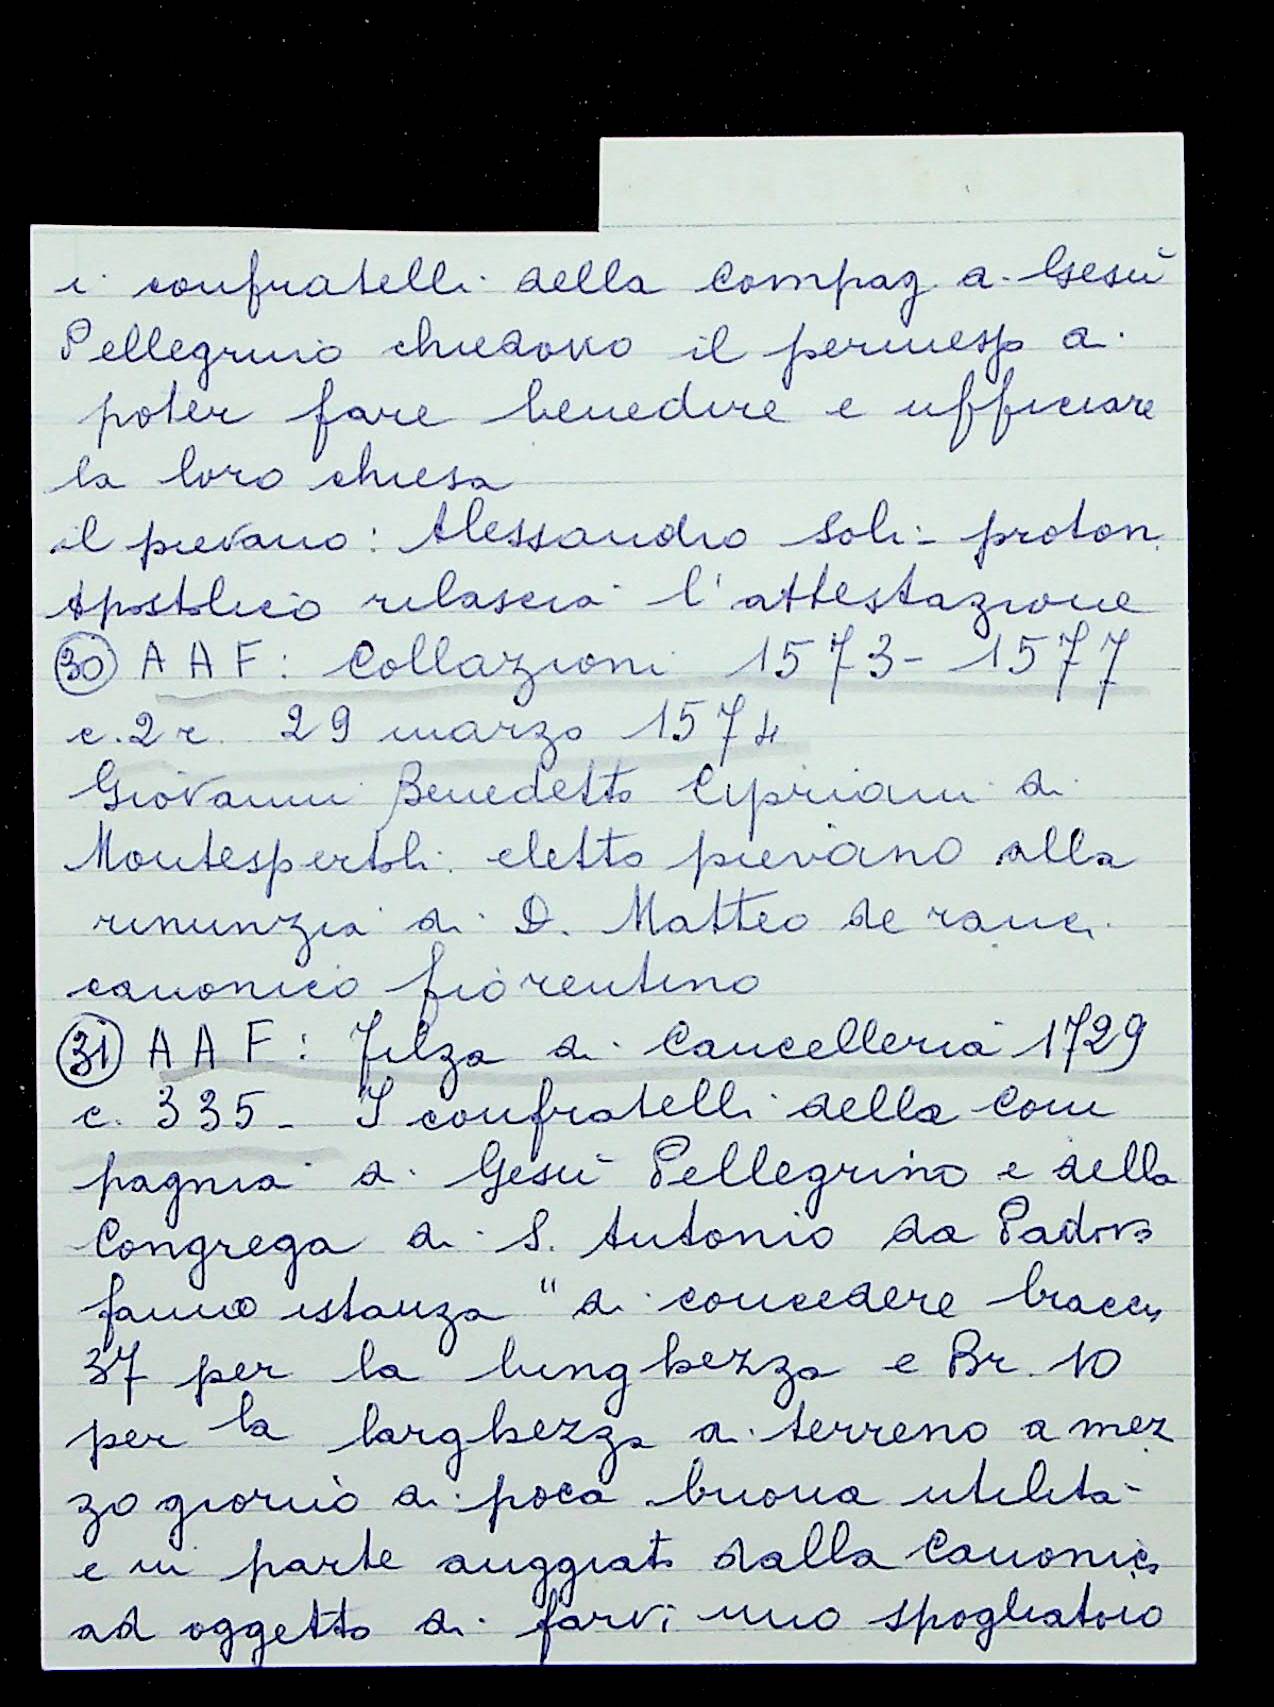 i confratelli della Compag. di Gesù
Pellegrino chiedono il permesso di
poter fare benedire e ufficiare
la loro chiesa
il pievano: Alessandro Soli - proton.
Apostolico rilascia l'attestazione
30 A A F: Collazioni 1573-1577
c. 2 r. 29 marzo 1574
Giovanni Benedetto Cipriani di
Montespertoli eletto pievano alla
rinunzia di D. Matteo de
canonico fiorentino
31 A A F: Filza di Cancelleria 1729
c. 335 - I confratelli della Com
pagnia di Gesù Pellegrino e della
Congrega di S. Antonio da Padova
fanno istanza "di concedere braccia
37 per la lunghezza e Br. 10
per la larghezza di terreno a mez
zo giorno di poca buona utilità
e in parte auggiato dalla Canonica
ad oggetto di farvi uno spogliatoio